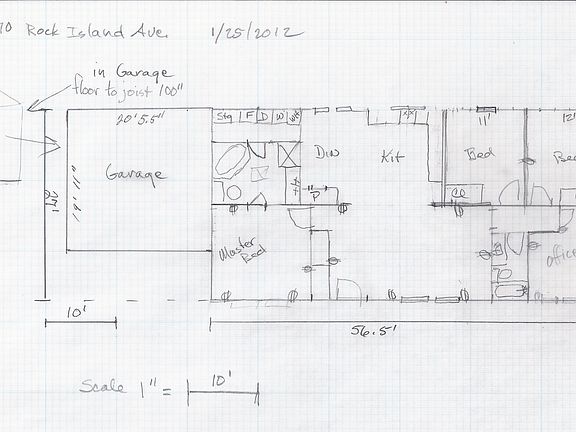 70 Rock Island Ave. 1/25/2012
in Garage
floor to joist 100"
20' 5.5"
Stg F D W
11'
12'
Din
Kit
Bed
Bed
Garage
P
Master
Bed
Office
10'
56.5'
Scale 1" = 10'